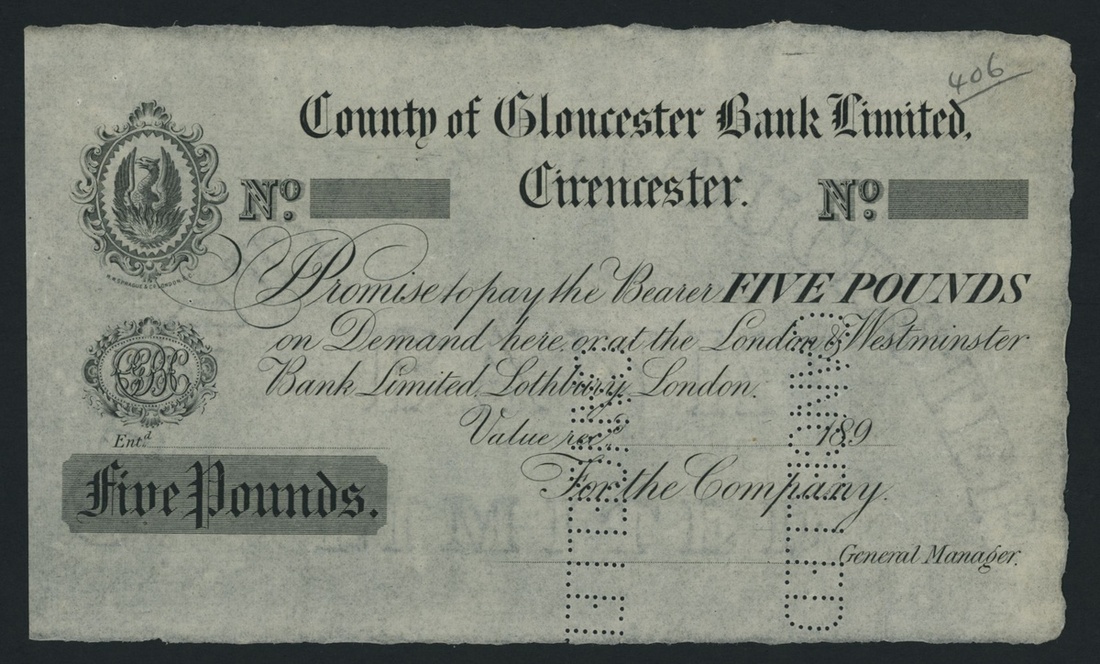 406
County of Gloucester Bank Limited,
Cirencester.
No. No.
I Promise to pay the Bearer FIVE POUNDS
on Demand here or at the London & Westminster
Bank Limited, Lothbury, London.
Value rec.d 189
Ent.d
For the Company.
Five Pounds.
General Manager.